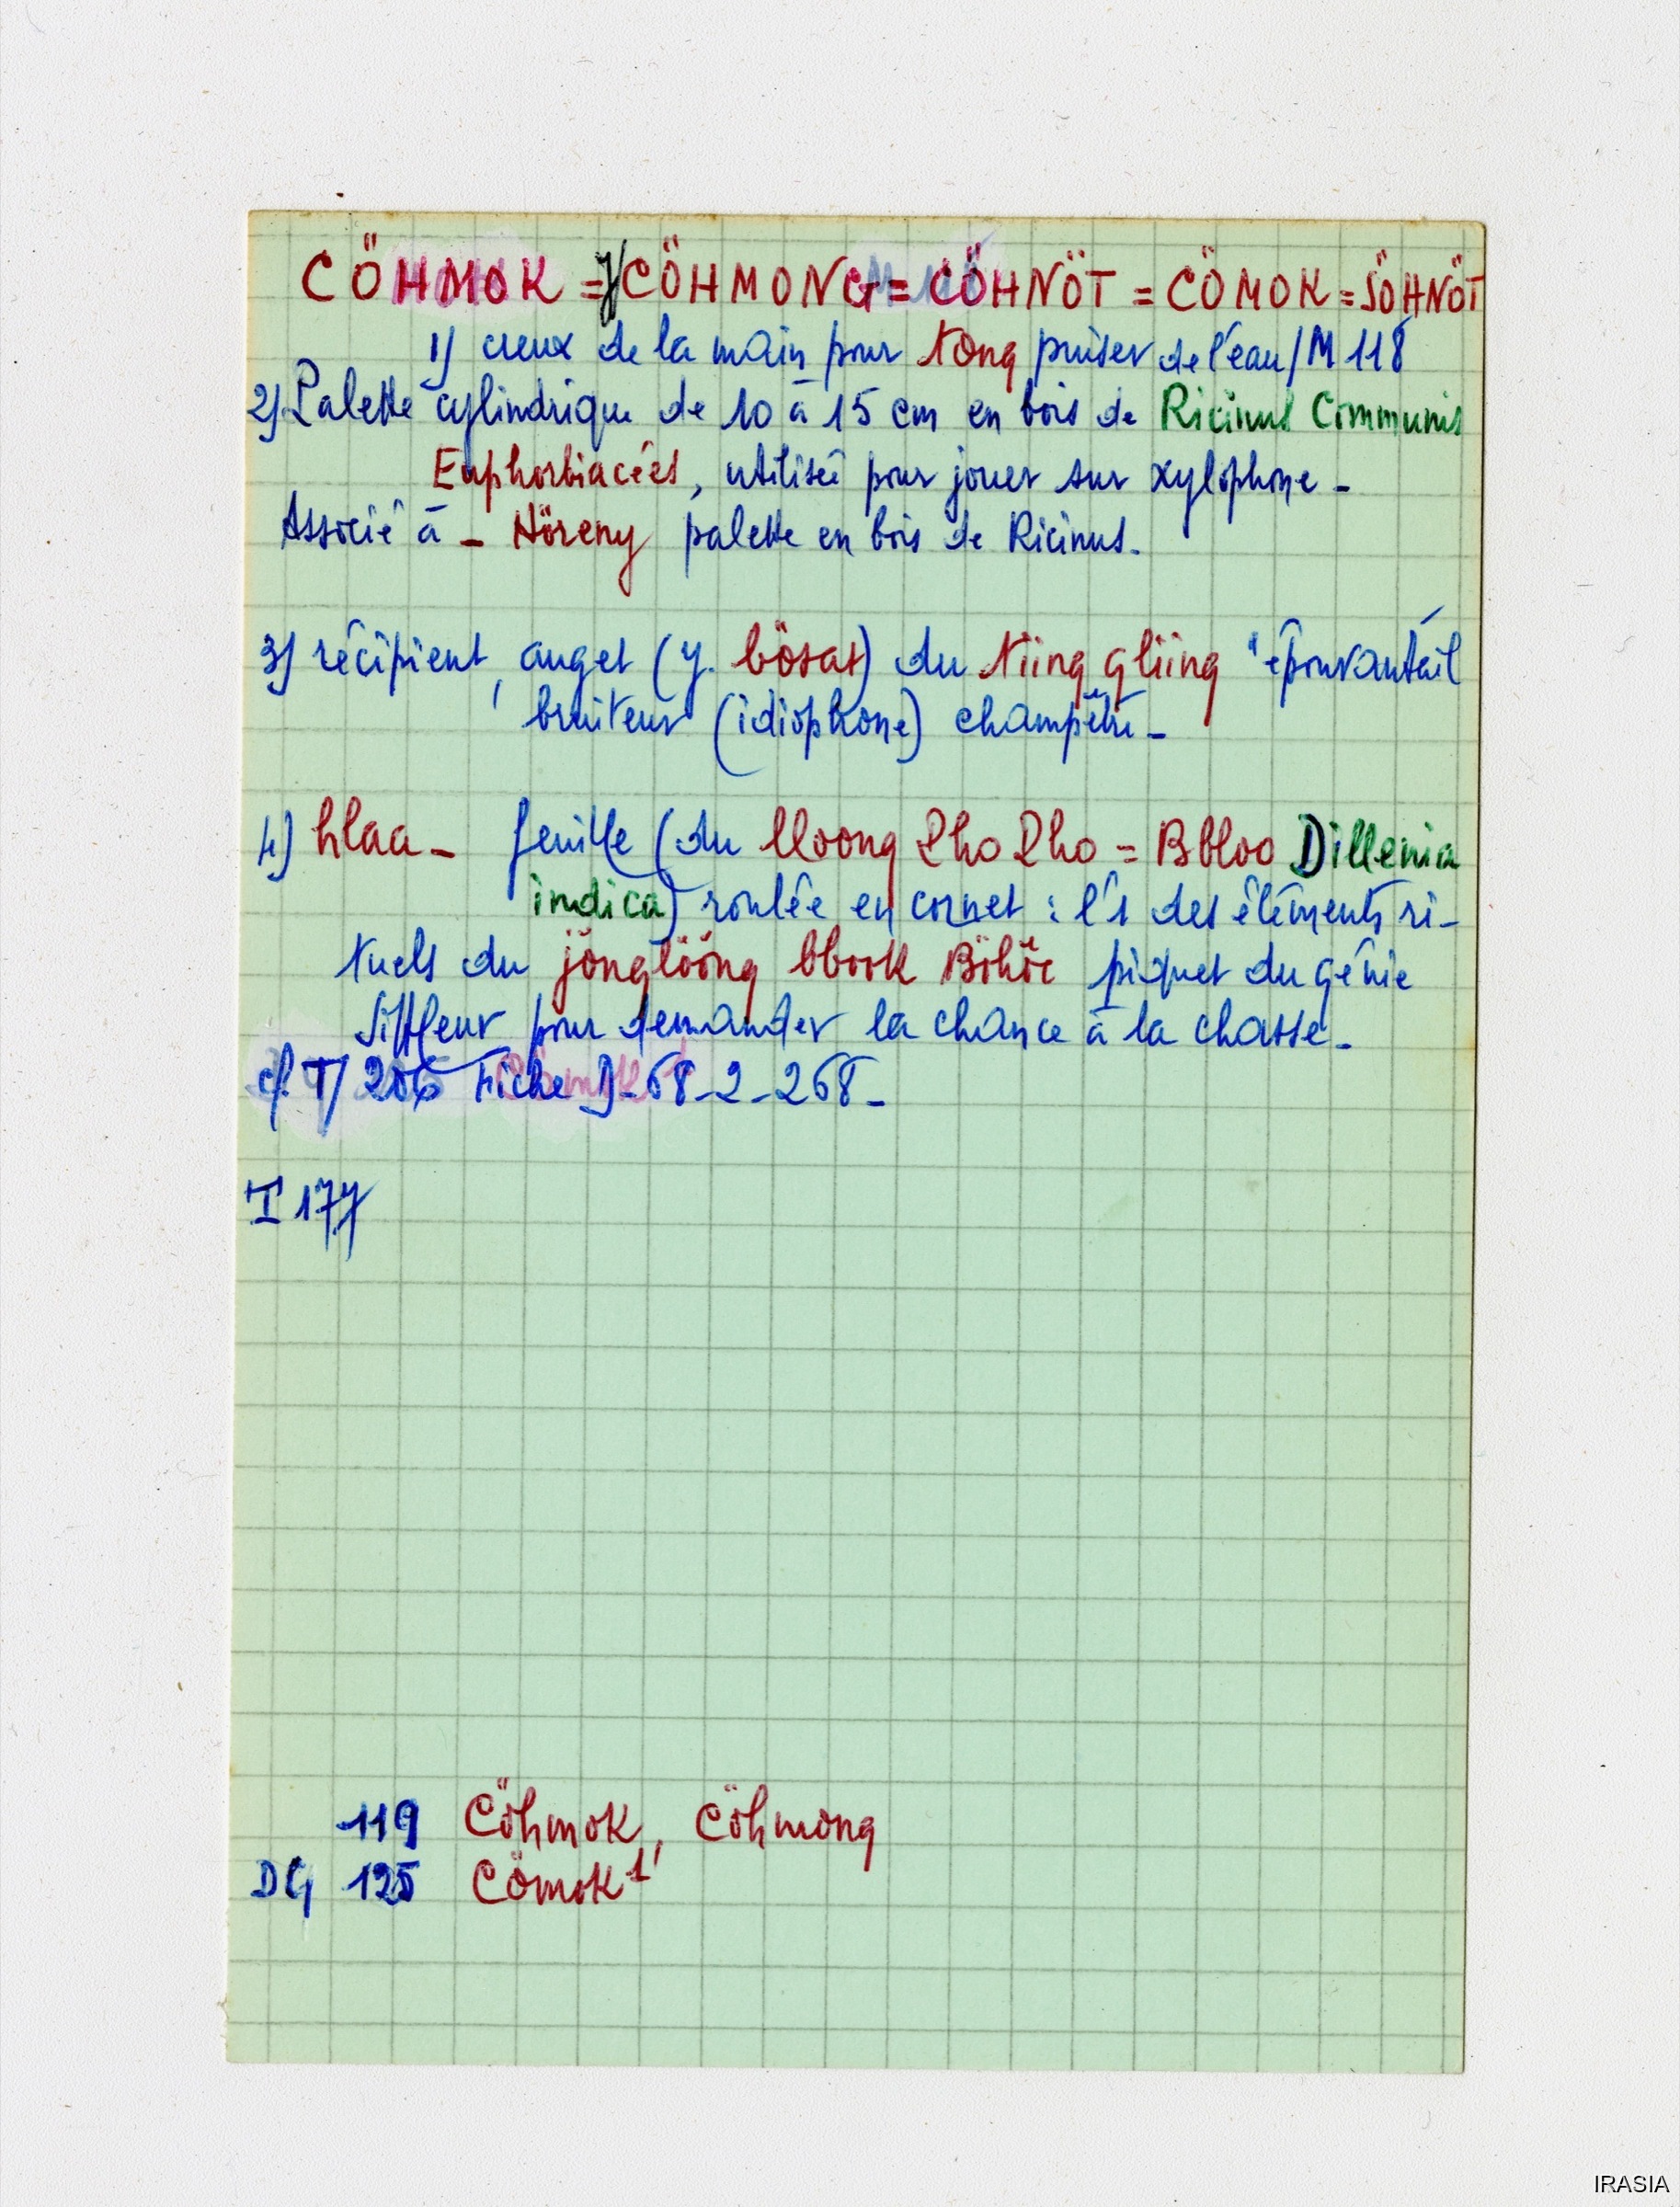 CÖHMOK = y CÖHMONG = CÖHNÖT = CÖMOK = SÖHNÖT
1) creux de la main pour tong puiser de l'eau / M 118
2) Palette cylindrique de 10 à 15 cm en bois de Ricinus Communis
Euphorbiacées, utilisée pour jouer sur xylophone -
Associé à - Höreny palette en bois de Ricinus.
3) récipient, auget (y. bösat) du tiing gliing "épouvantail
bruiteur (idiophone) champêtre -
4) hlaa - feuille (du lloong Pho Pho = Bbloo Dillenia
indica) roulée en cornet : l'1 des éléments ri-
tuels du jönglööng bbook Böhöc piquet du génie
siffleur pour demander la chance à la chasse -
cf. T/ 206 Fiche D-68-2-268 -
I 177
119 Cöhmok, Cöhmong
DG 125 Cömok 1
IRASIA